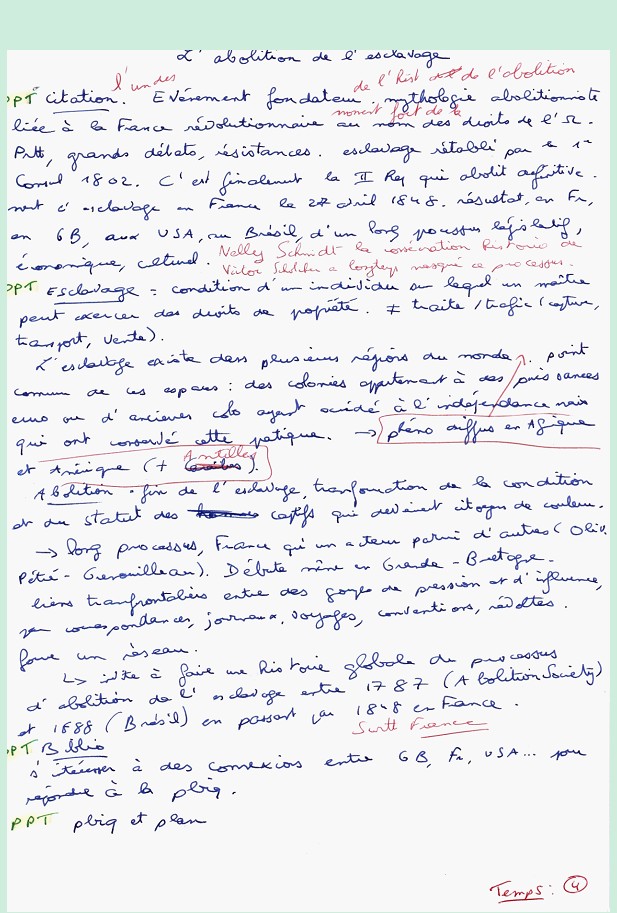 L'abolition de l'esclavage
l'un des
de l'hist de l'abolition
PPT Citation. Evénement fondateur. mythologie abolitionniste
moment fort de la
liée à la France révolutionnaire au nom des droits de l'H.
Prtt, grands débats, résistances. esclavage rétabli par le 1er
Consul 1802. C'est finalement la II Rep qui abolit définitive-
ment l'esclavage en France le 27 avril 1848. résultat, en Fr,
en GB, aux USA, au Brésil, d'un long processus législatif,
économique, culturel. Nelly Schmidt la consécration historio de
Victor Schœlcher a longtemps masqué ce processus.
PPT Esclavage = condition d'un individu sur lequel un maître
peut exercer des droits de propriété. ≠ traite / trafic (capture,
transport, vente).
L'esclavage existe dans plusieurs régions du monde. point
commun de ces espaces : des colonies appartenant à des puissances
euro ou d'anciennes colo ayant accédé à l'indépendance mais
qui ont conservé cette pratique. → phéno diffus en Afrique
et Amérique (+ Antilles).
Abolition = fin de l'esclavage, transformation de la condition
et du statut des captifs qui devient citoyen de couleur.
→ long processus, France qu'un acteur parmi d'autres (Oliv.
Pétré-Grenouilleau). Débute même en Grande-Bretagne.
liens transfrontaliers entre des groupes de pression et d'influence,
par correspondances, journaux, voyages, conventions, révoltes.
forme un réseau.
↳ invite à faire une histoire globale du processus
d'abolition de l'esclavage entre 1787 (Abolition Society)
et 1888 (Brésil) en passant par 1848 en France.
Surtt France
PPT Biblio
s'intéresser à des connexions entre GB, Fr, USA... pour
répondre à la pbiq.
PPT pbiq et plan
Temps : 4